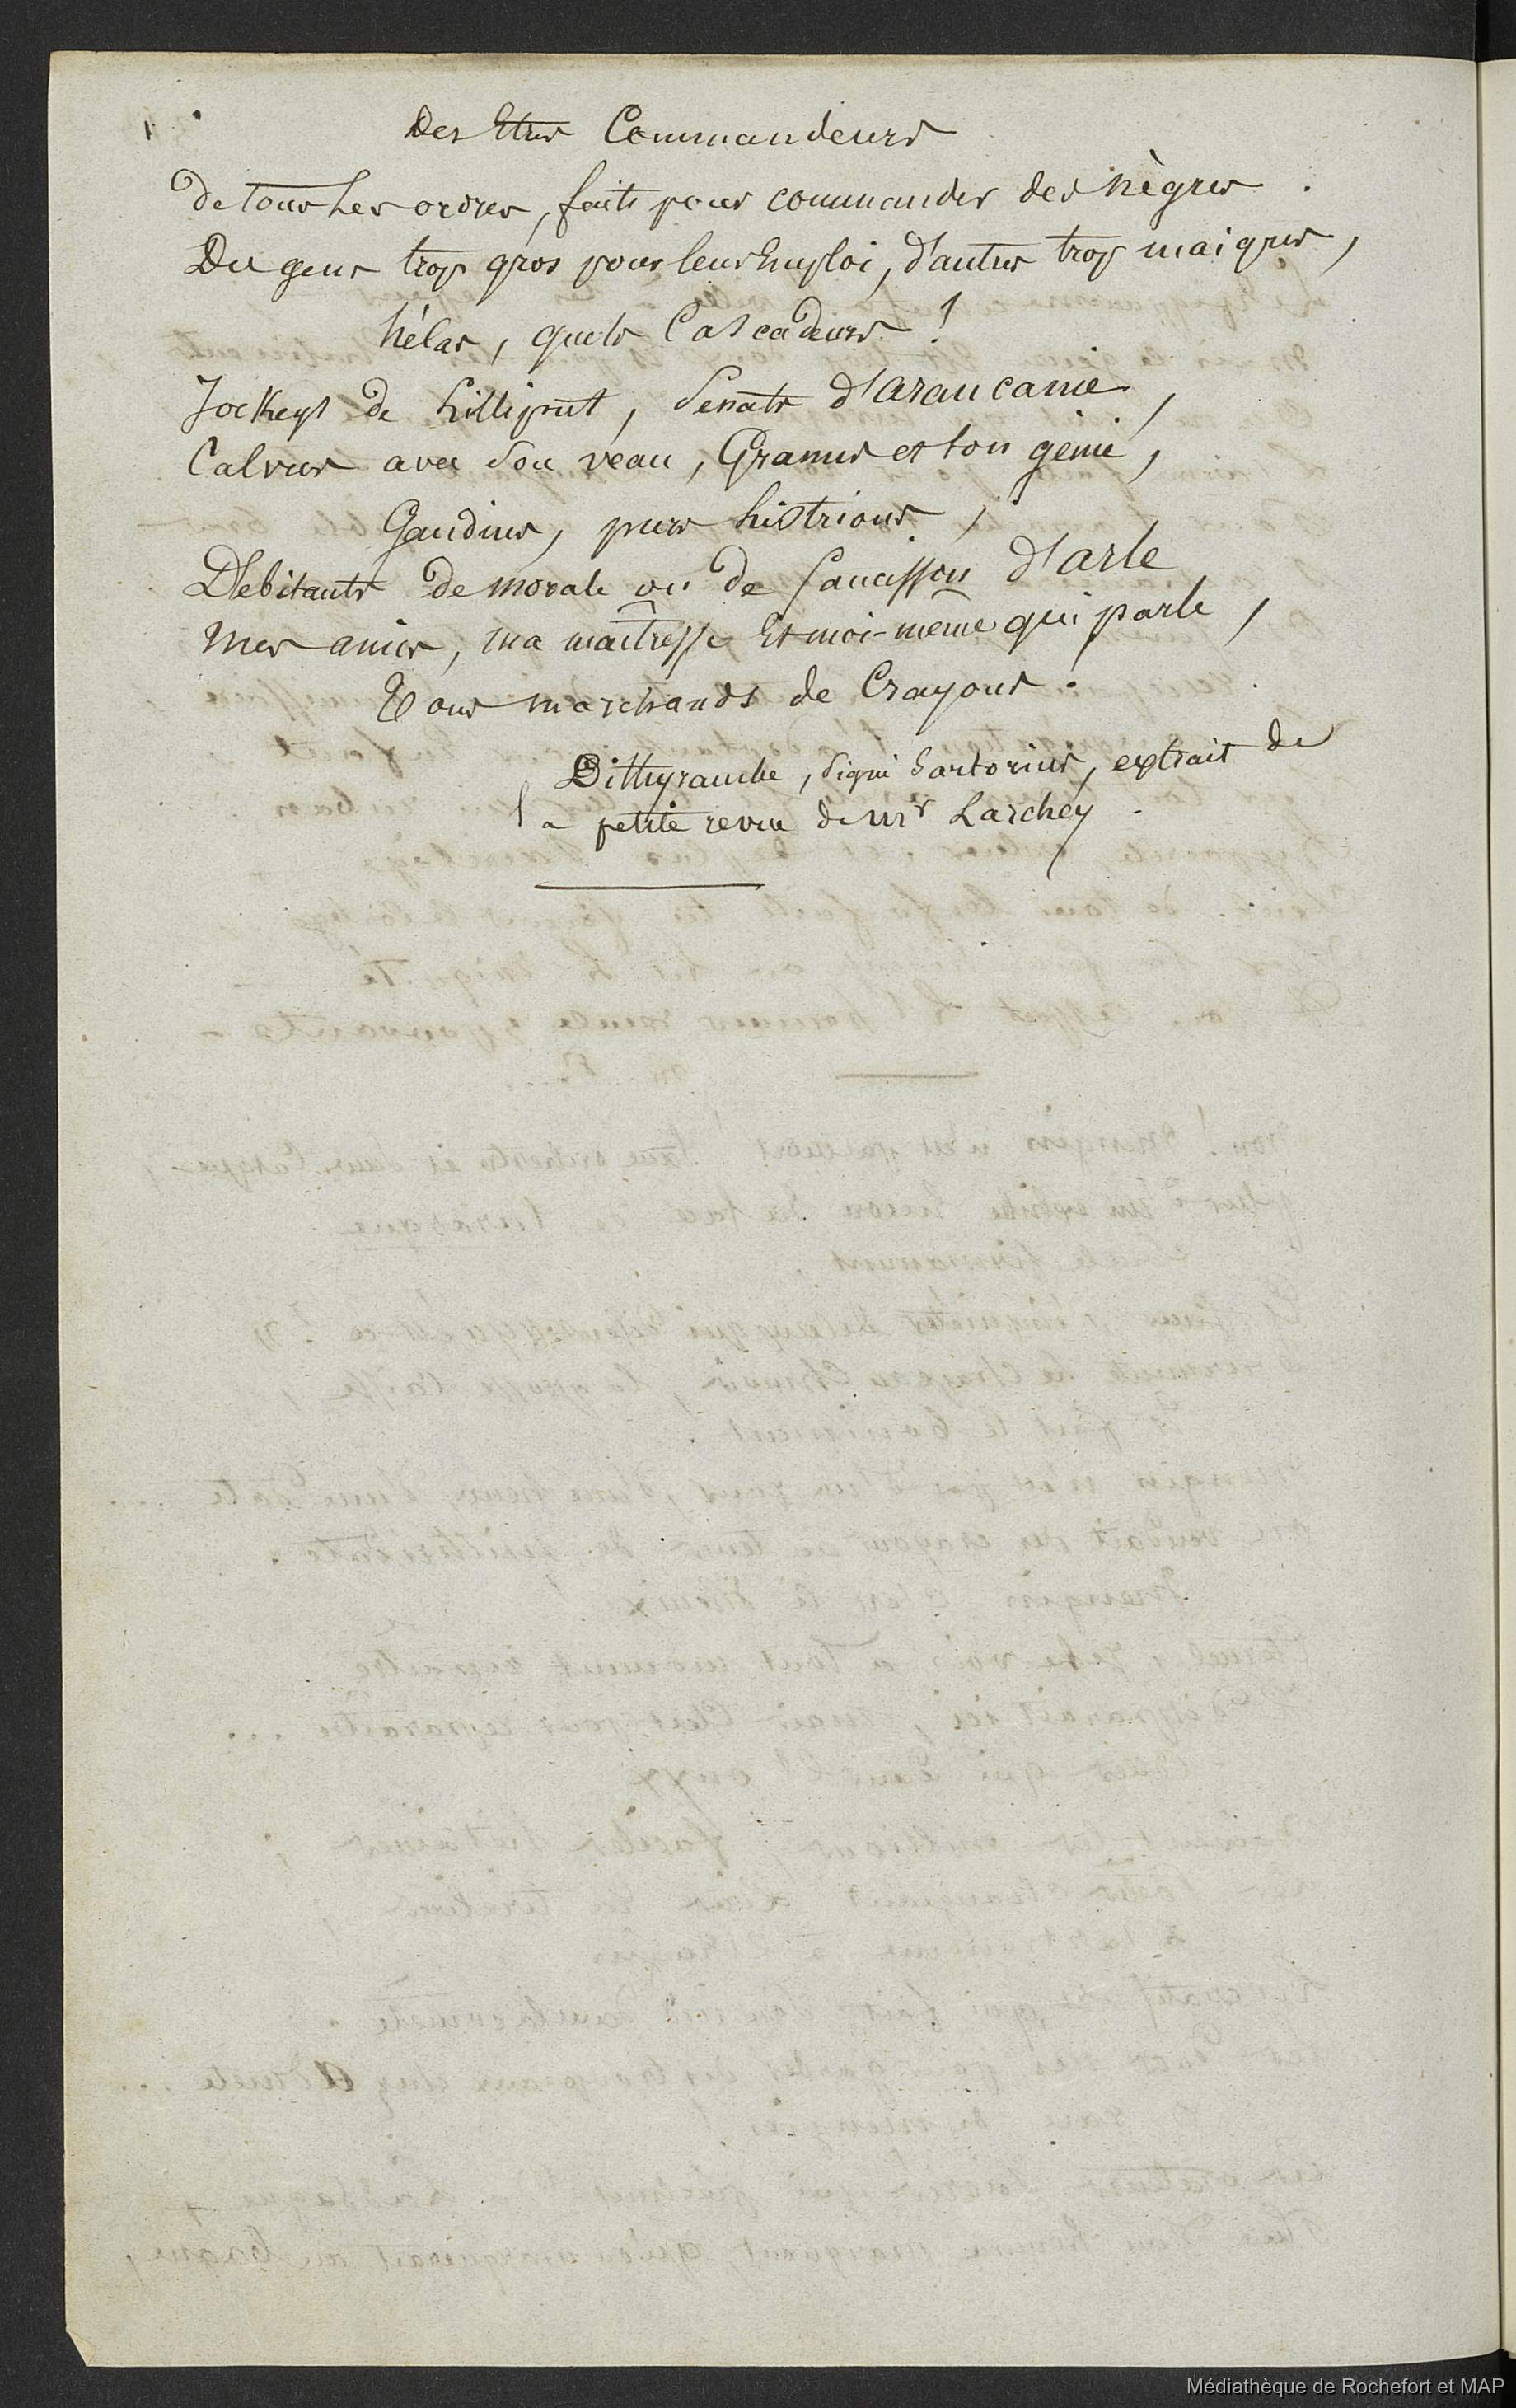 Des Etres Commandeurs
de tous les ordres, faits pour commander des nègres.
Des gens trop gros pour leur Emploi, d'autres trop maigres,
hélas, quels Cascadeurs !
Jockeys de Lilliput, Sénats d'araucanie,
Calvus avec son veau, et ton génie,
Gaudius, purs histrions,
Débitants de morale ou de saucisson d'arle,
mes amies, ma maîtresse Et moi-même qui parle,
Tous marchands de Crayons.
Dithyrambe, signé Sartorius, extrait de
la petite revue de mr Larchey.
Médiathèque de Rochefort et MAP